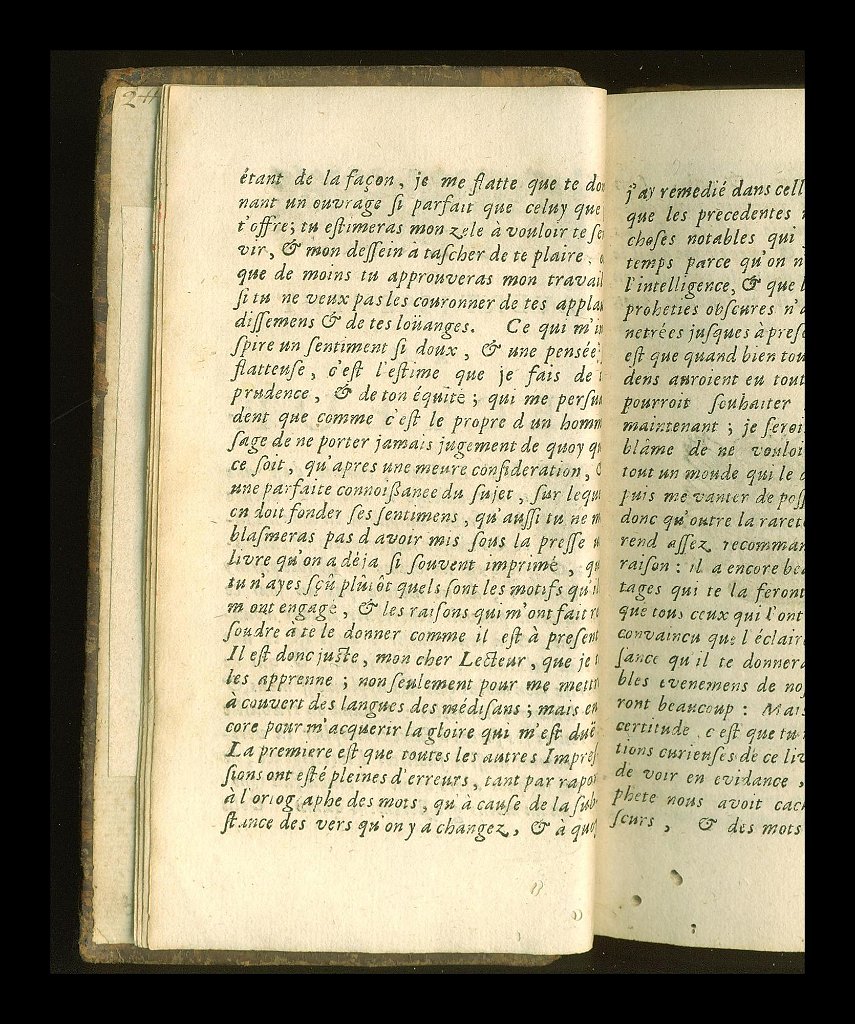 24
étant de la façon, je me flatte que te do
nant un ouvrage ſi parfait que celuy que
t'offre; tu eſtimeras mon zele à vouloir te ſe
vir, & mon deſſein à taſcher de te plaire,
que de moins tu approuveras mon travail
ſi tu ne veux pas les couronner de tes appla
diſſemens & de tes loüanges. Ce qui m'in
ſpire un ſentiment ſi doux, & une penſée
flatteuſe, c'eſt l'eſtime que je fais de
prudence, & de ton équité; qui me perſu
dent que comme c'eſt le propre d'un homm
ſage de ne porter jamais jugement de quoy qu
ce ſoit, qu'apres une meure conſideration,
une parfaite connoiſſance du ſujet, ſur lequ
on doit fonder ſes ſentimens, qu'auſſi tu ne m
blaſmeras pas d'avoir mis ſous la preſſe u
livre qu'on a déja ſi ſouvent imprimé, qu
tu n'ayes ſçû plutôt quels ſont les motifs qu'il
m'ont engagé, & les raiſons qui m'ont fait r
ſoudre à te le donner comme il eſt à preſent
Il eſt donc juſte, mon cher Lecteur, que je t
les apprenne; non ſeulement pour me mettr
à couvert des langues des médiſans; mais en
core pour m'acquerir la gloire qui m'eſt duë
La premiere eſt que toutes les autres Impreſ
ſions ont eſté pleines d'erreurs, tant par rapo
à l'ortographe des mots, qu'à cauſe de la ſub
ſtance des vers qu'on y a changez, & à quoy
j'ay remedié dans cell
que les precedentes
choſes notables qui
temps parce qu'on n
l'intelligence, & que
propheties obſcures n'a
netrées juſques à preſe
eſt que quand bien tou
dens auroient eu tout
pourroit ſouhaiter
maintenant; je ſeroi
blâme de ne vouloi
tout un monde qui le
puis me vanter de poſſ
donc qu'outre la raret
rend aſſez recomman
raiſon: il a encore be
tages qui te la feront
que tous ceux qui l'ont
convaincu que l'éclair
ſance qu'il te donner
bles evenemens de no
ront beaucoup: Mais
certitude c'eſt que tu
tions curieuſes de ce liv
de voir en evidance,
phete nous avoit cach
ſcurs, & des mots